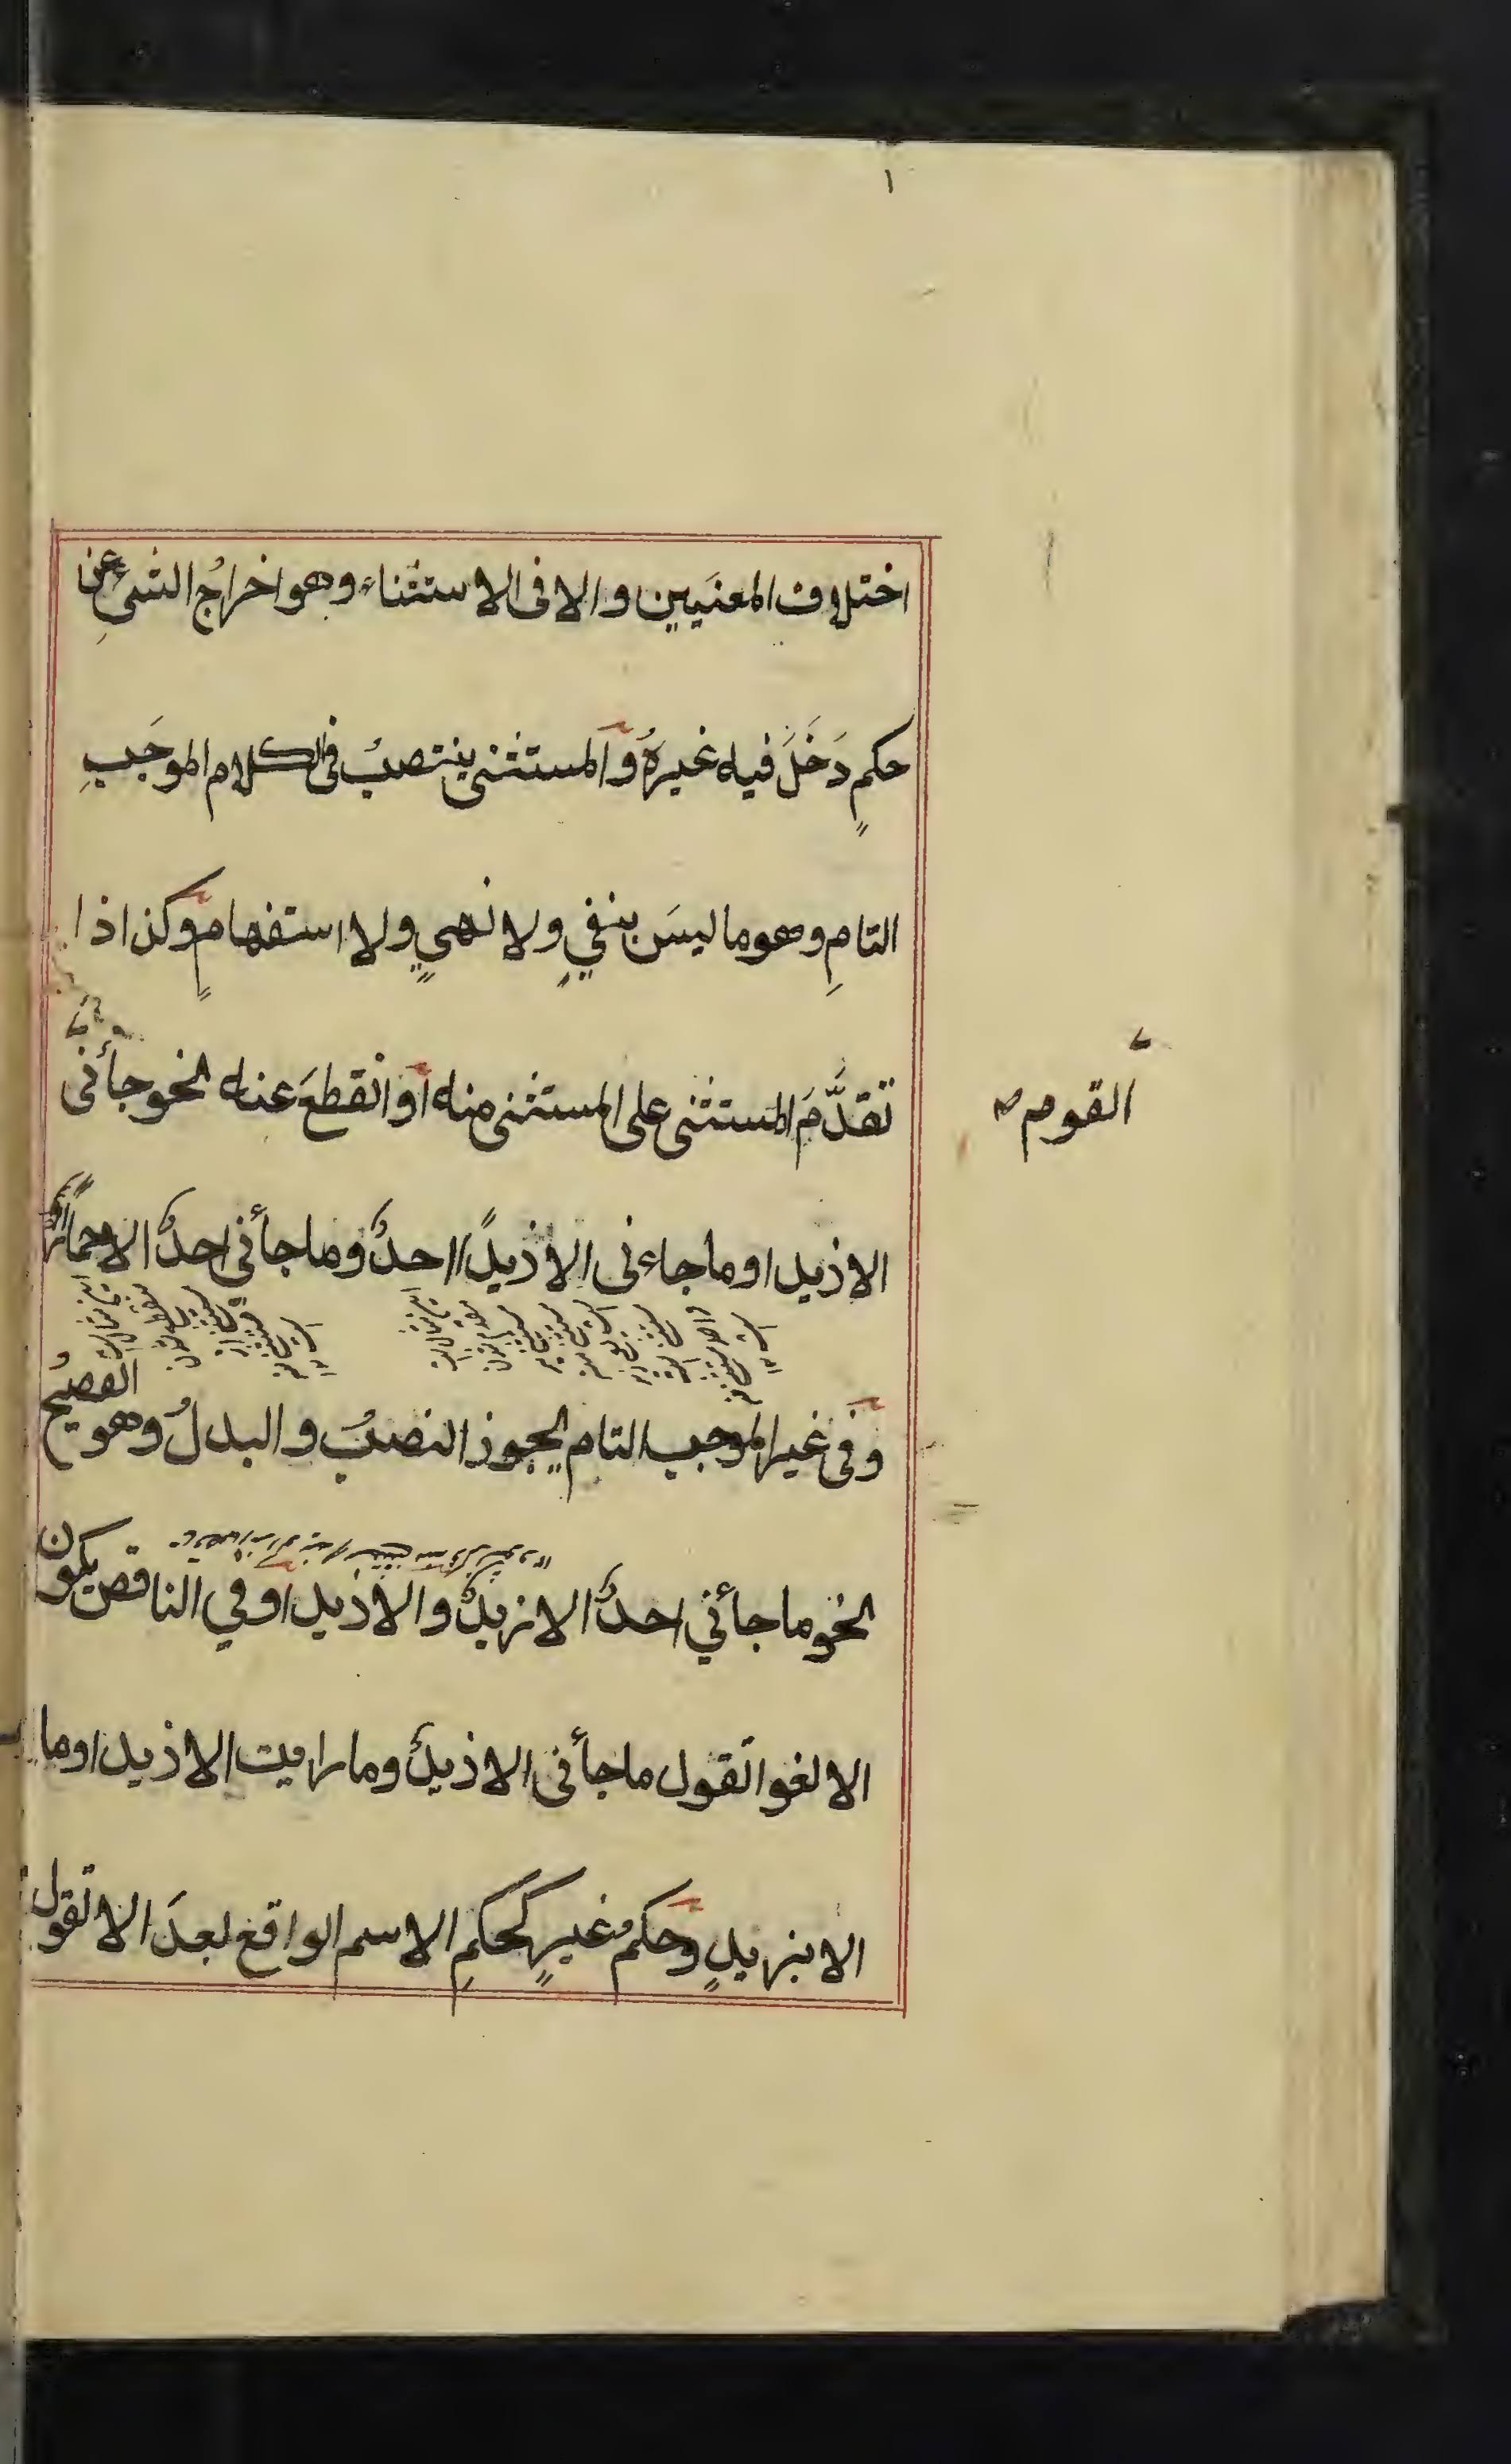 اختلاف المعنَيين والا فى الاستثناء وهو اخراجُ الشئِ عن
حكمٍ دَخَلَ فيه غيرهُ وَالمستثنى ينتصبُ فى الكلام الموجَبِ
التامِ وهو ما ليسَ بنفيٍ ولا نهيٍ ولا استفهامٍ وكذا اذا
تقدَّمَ المستثنى على المستثنى منه اَو انقطعَ عنه نحو جأنى
القوم
الا ذيدا وما جاءنى الا ذيدًا احدٌ وما جأنى احدٌ الا حمارًا
وفى غير الموجب التام يجوز النصبُ والبدلُ وهو الفصيحُ
نحو ما جأني احدٌ الا زيدٌ والا ذيدا وفي الناقص يكون
الا لغوا تقول ما جأنى الا ذيدٌ وما رايت الا ذيدا وما
الا بزيدٍ وحكمُ غيرٍ كحكمِ الاسم الواقع بعدَ الا تقول